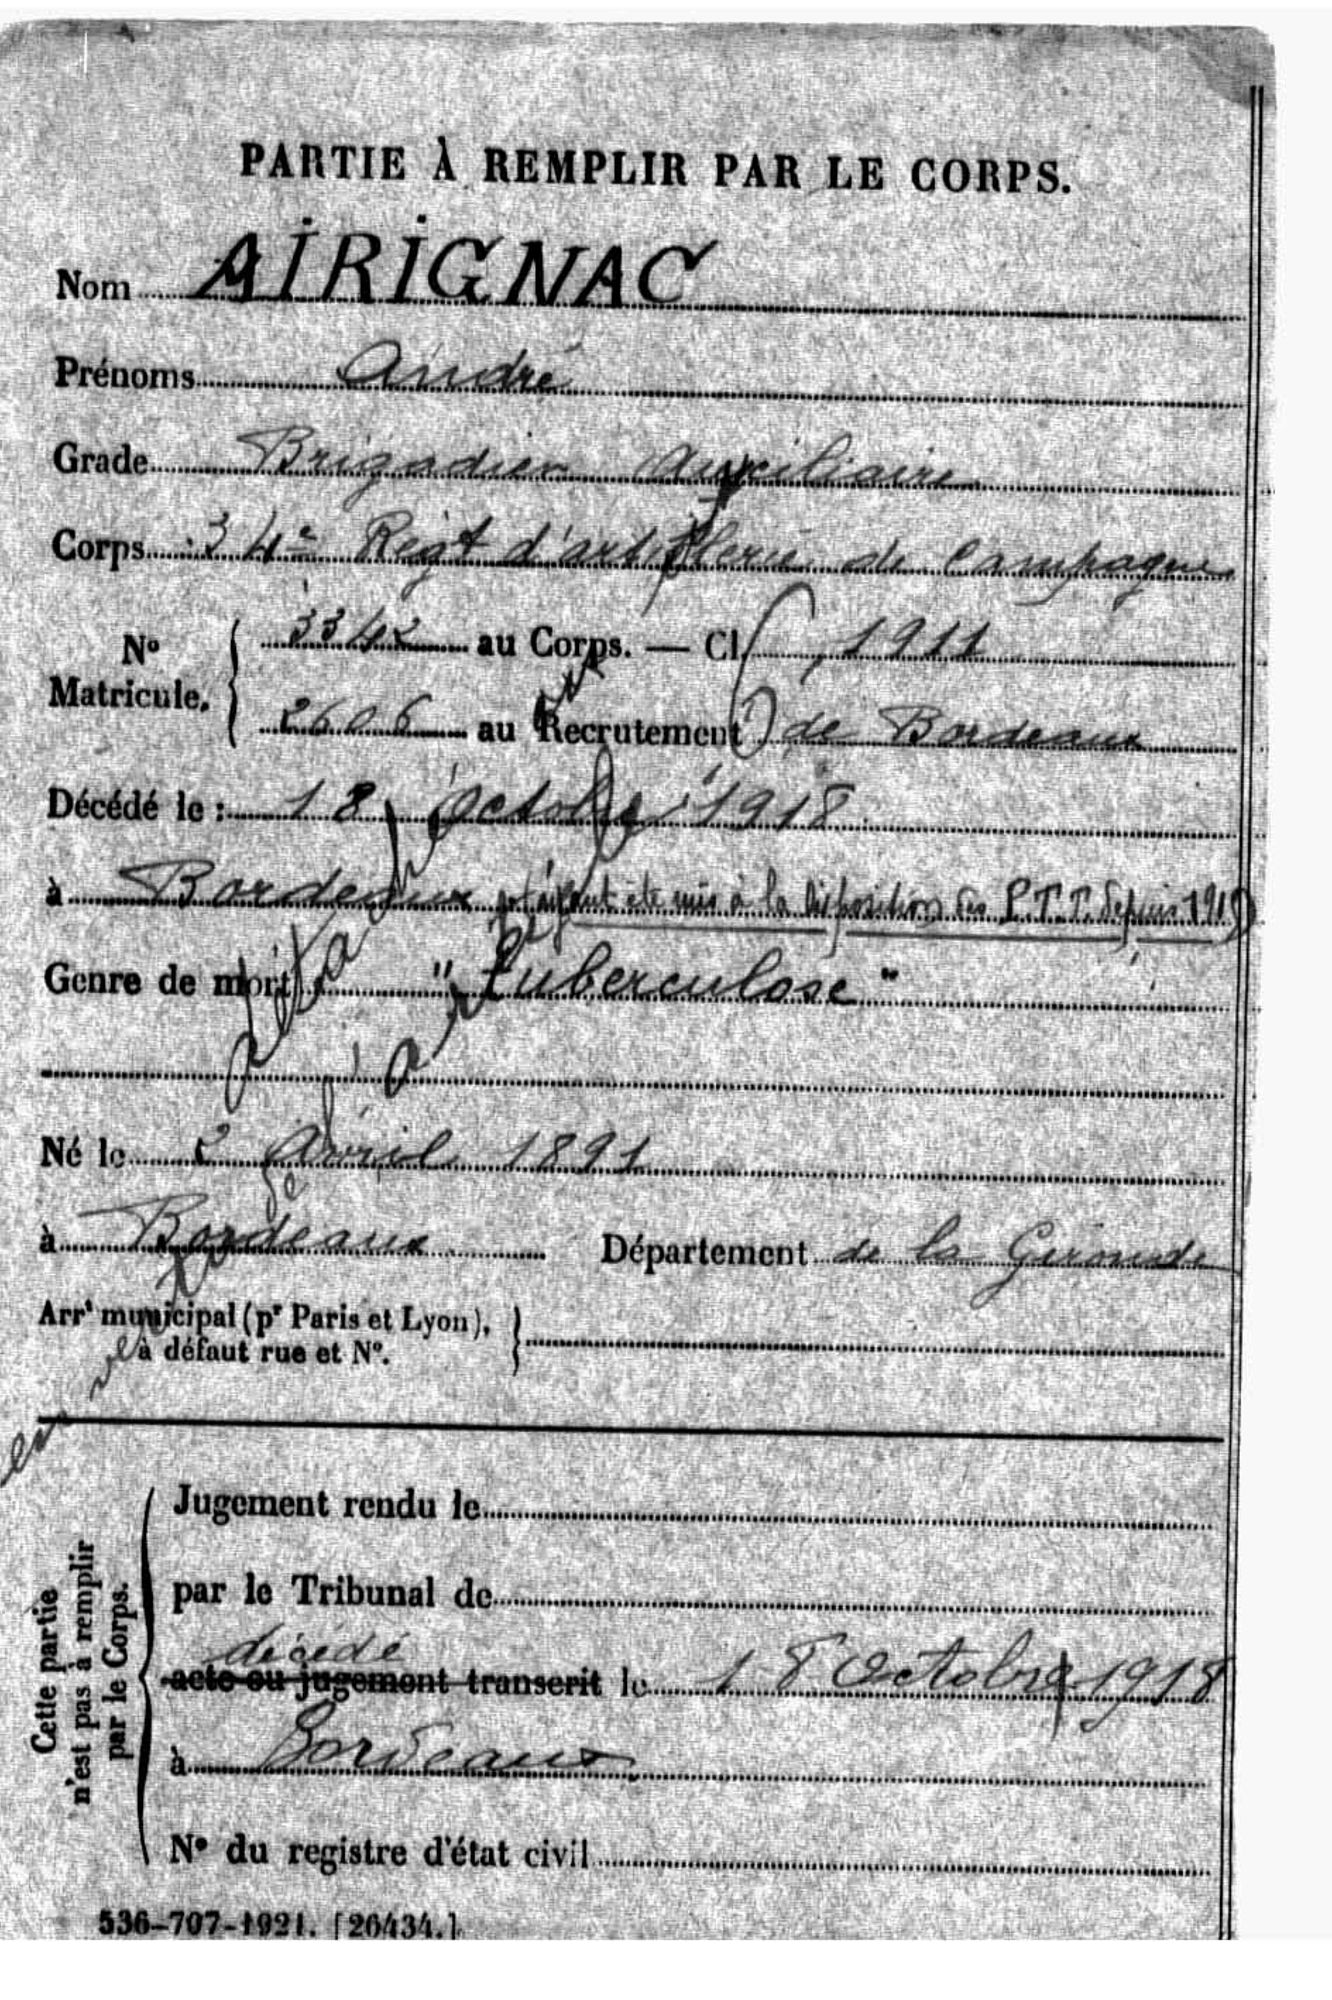 PARTIE À REMPLIR PAR LE CORPS.
Nom AIRIGNAC
Prénoms André
Grade Brigadier auxiliaire
Corps 34e Régt d'artillerie de Campagne
No Matricule. 3342 au Corps. — Cl. 1911
2606 au Recrutement de Bordeaux
Décédé le : 18 Octobre 1918
à Bordeaux ayant été mis à la disposition des P.T.T. depuis
Genre de mort "tuberculose"
Né le 2 Avril 1891
à Bordeaux Département de la Gironde
Arrt municipal (pr Paris et Lyon),
à défaut rue et No.
Cette partie
n'est pas à remplir
par le Corps.
Jugement rendu le
par le Tribunal de
décédé
acte ou jugement transcrit le 18 Octobre 1918
à Bordeaux
No du registre d'état civil
536-707-1921. [26434.]